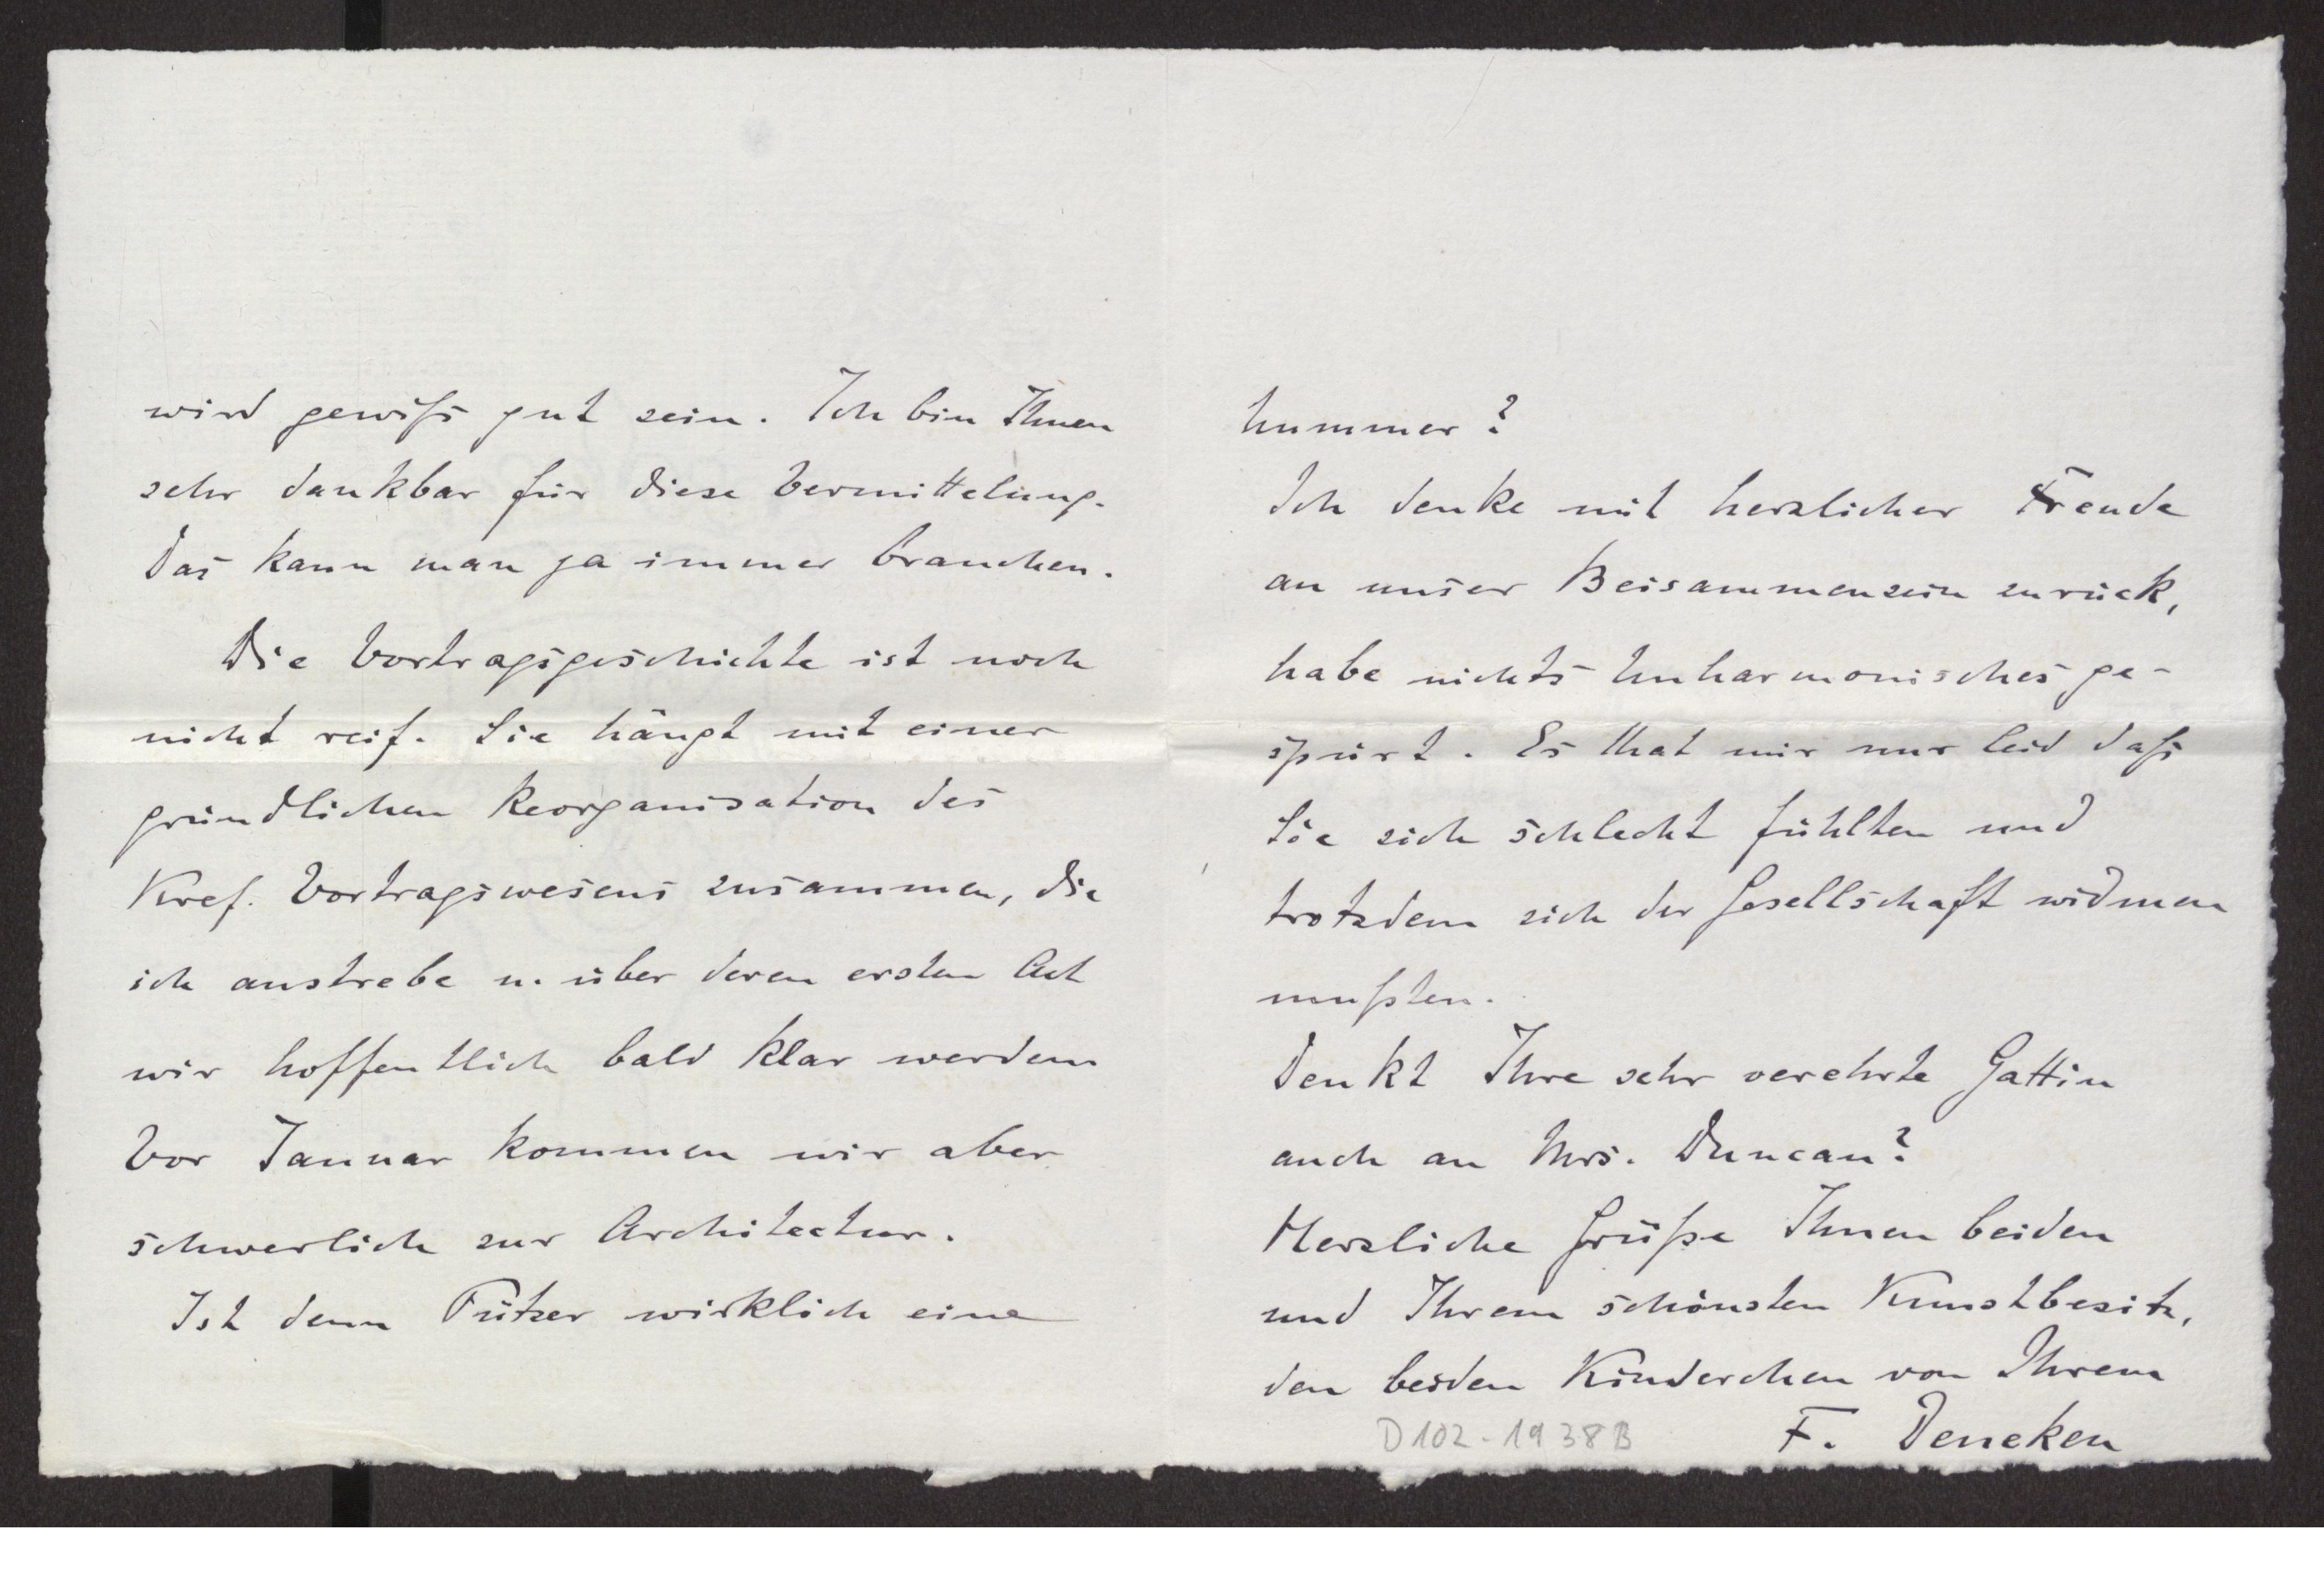 wird gewiß gut sein. Ich bin Ihnen
sehr dankbar für diese Vermittelung.
Das kann man ja immer brauchen.
Die Vortragsgeschichte ist noch
nicht reif. Sie hängt mit einer
gründlichen Reorganisation des
Kref. Vortragswesens zusammen, die
ich anstrebe u. über deren ersten Act
wir hoffentlich bald klar werden
Vor Januar kommen wir aber
schwerlich zur Architectur.
Ist denn Pützer wirklich eine
Nummer?
Ich denke mit herzlicher Freude
an unser Beisammensein zurück,
habe nichts Unharmonisches ge-
spürt. Es that mir nur leid daß
Sie sich schlecht fühlten und
trotzdem sich der Gesellschaft widmen
mußten.
Denkt Ihre sehr verehrte Gattin
auch an Mrs. Duncan?
Herzliche Grüße Ihnen beiden
und Ihrem schönsten Kunstbesitz,
den beiden Kinderchen von Ihrem
F. Deneken
D102-1938B